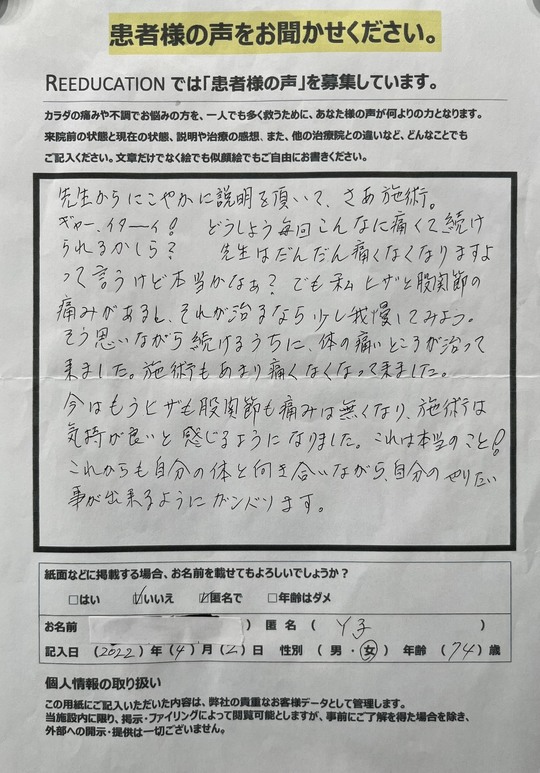 患者様の声をお聞かせください。
REEDUCATION では「患者様の声」を募集しています。
カラダの痛みや不調でお悩みの方を、一人でも多く救うために、あなた様の声が何よりの力となります。
来院前の状態と現在の状態、説明や治療の感想、また、他の治療院との違いなど、どんなことでも
ご記入ください。文章だけでなく絵でも似顔絵でもご自由にお書きください。
先生からにこやかに説明を頂いて、さあ施術。
ギャー、イターイ! どうしよう毎回こんなに痛くて続け
られるかしら? 先生はだんだん痛くなくなりますよ
って言うけど本当かなぁ? でも私ヒザと股関節の
痛みがあるし、それが治るなら少し我慢してみよう。
そう思いながら続けるうちに、体の痛いところが治って
来ました。施術もあまり痛くなくなって来ました。
今はもうヒザも股関節も痛みは無くなり、施術は
気持が良いと感じるようになりました。これは本当のこと!
これからも自分の体と向き合いながら、自分のやりたい
事が出来るようにガンバります。
紙面などに掲載する場合、お名前を載せてもよろしいでしょうか?
□はい ☑いいえ ☑匿名で □年齢はダメ
お名前 ) 匿名 ( Y子 )
記入日 (2022) 年 (4) 月 (2) 日 性別 ( 男・女 ) 年齢 (74) 歳
個人情報の取り扱い
この用紙にご記入いただいた内容は、弊社の貴重なお客様データとして管理します。
当施設内に限り、掲示・ファイリングによって閲覧可能としますが、事前にご了解を得た場合を除き、
外部への開示・提供は一切ございません。